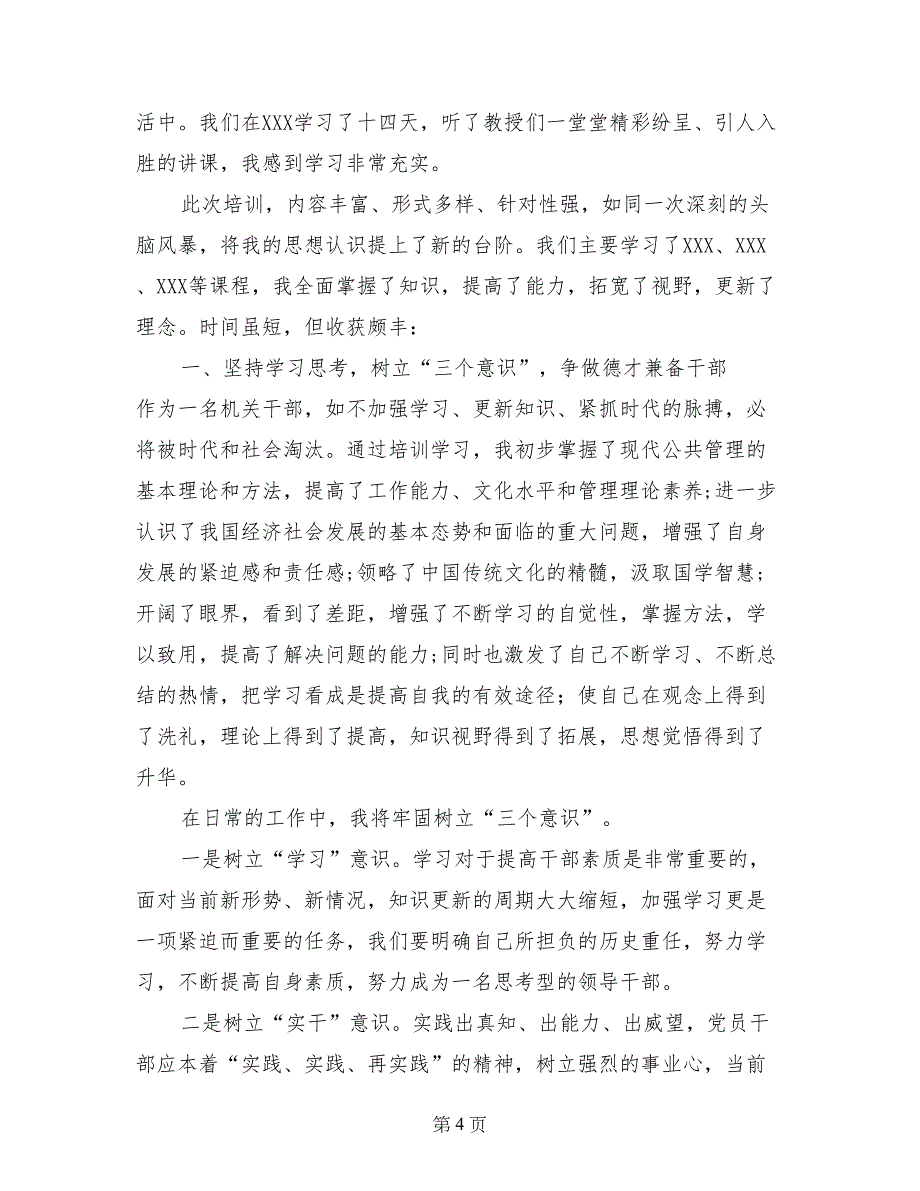 活中。我们在XXX学习了十四天，听了教授们一堂堂精彩纷呈、引人入
胜的讲课，我感到学习非常充实。
此次培训，内容丰富、形式多样、针对性强，如同一次深刻的头
脑风暴，将我的思想认识提上了新的台阶。我们主要学习了XXX、XXX
、XXX等课程，我全面掌握了知识，提高了能力，拓宽了视野，更新了
理念。时间虽短，但收获颇丰：
一、坚持学习思考，树立“三个意识”，争做德才兼备干部
作为一名机关干部，如不加强学习、更新知识、紧抓时代的脉搏，必
将被时代和社会淘汰。通过培训学习，我初步掌握了现代公共管理的
基本理论和方法，提高了工作能力、文化水平和管理理论素养;进一步
认识了我国经济社会发展的基本态势和面临的重大问题，增强了自身
发展的紧迫感和责任感;领略了中国传统文化的精髓，汲取国学智慧;
开阔了眼界，看到了差距，增强了不断学习的自觉性，掌握方法，学
以致用，提高了解决问题的能力;同时也激发了自己不断学习、不断总
结的热情，把学习看成是提高自我的有效途径；使自己在观念上得到
了洗礼，理论上得到了提高，知识视野得到了拓展，思想觉悟得到了
升华。
在日常的工作中，我将牢固树立“三个意识”。
一是树立“学习”意识。学习对于提高干部素质是非常重要的，
面对当前新形势、新情况，知识更新的周期大大缩短，加强学习更是
一项紧迫而重要的任务，我们要明确自己所担负的历史重任，努力学
习，不断提高自身素质，努力成为一名思考型的领导干部。
二是树立“实干”意识。实践出真知、出能力、出威望，党员干
部应本着“实践、实践、再实践”的精神，树立强烈的事业心，当前
第 4 页